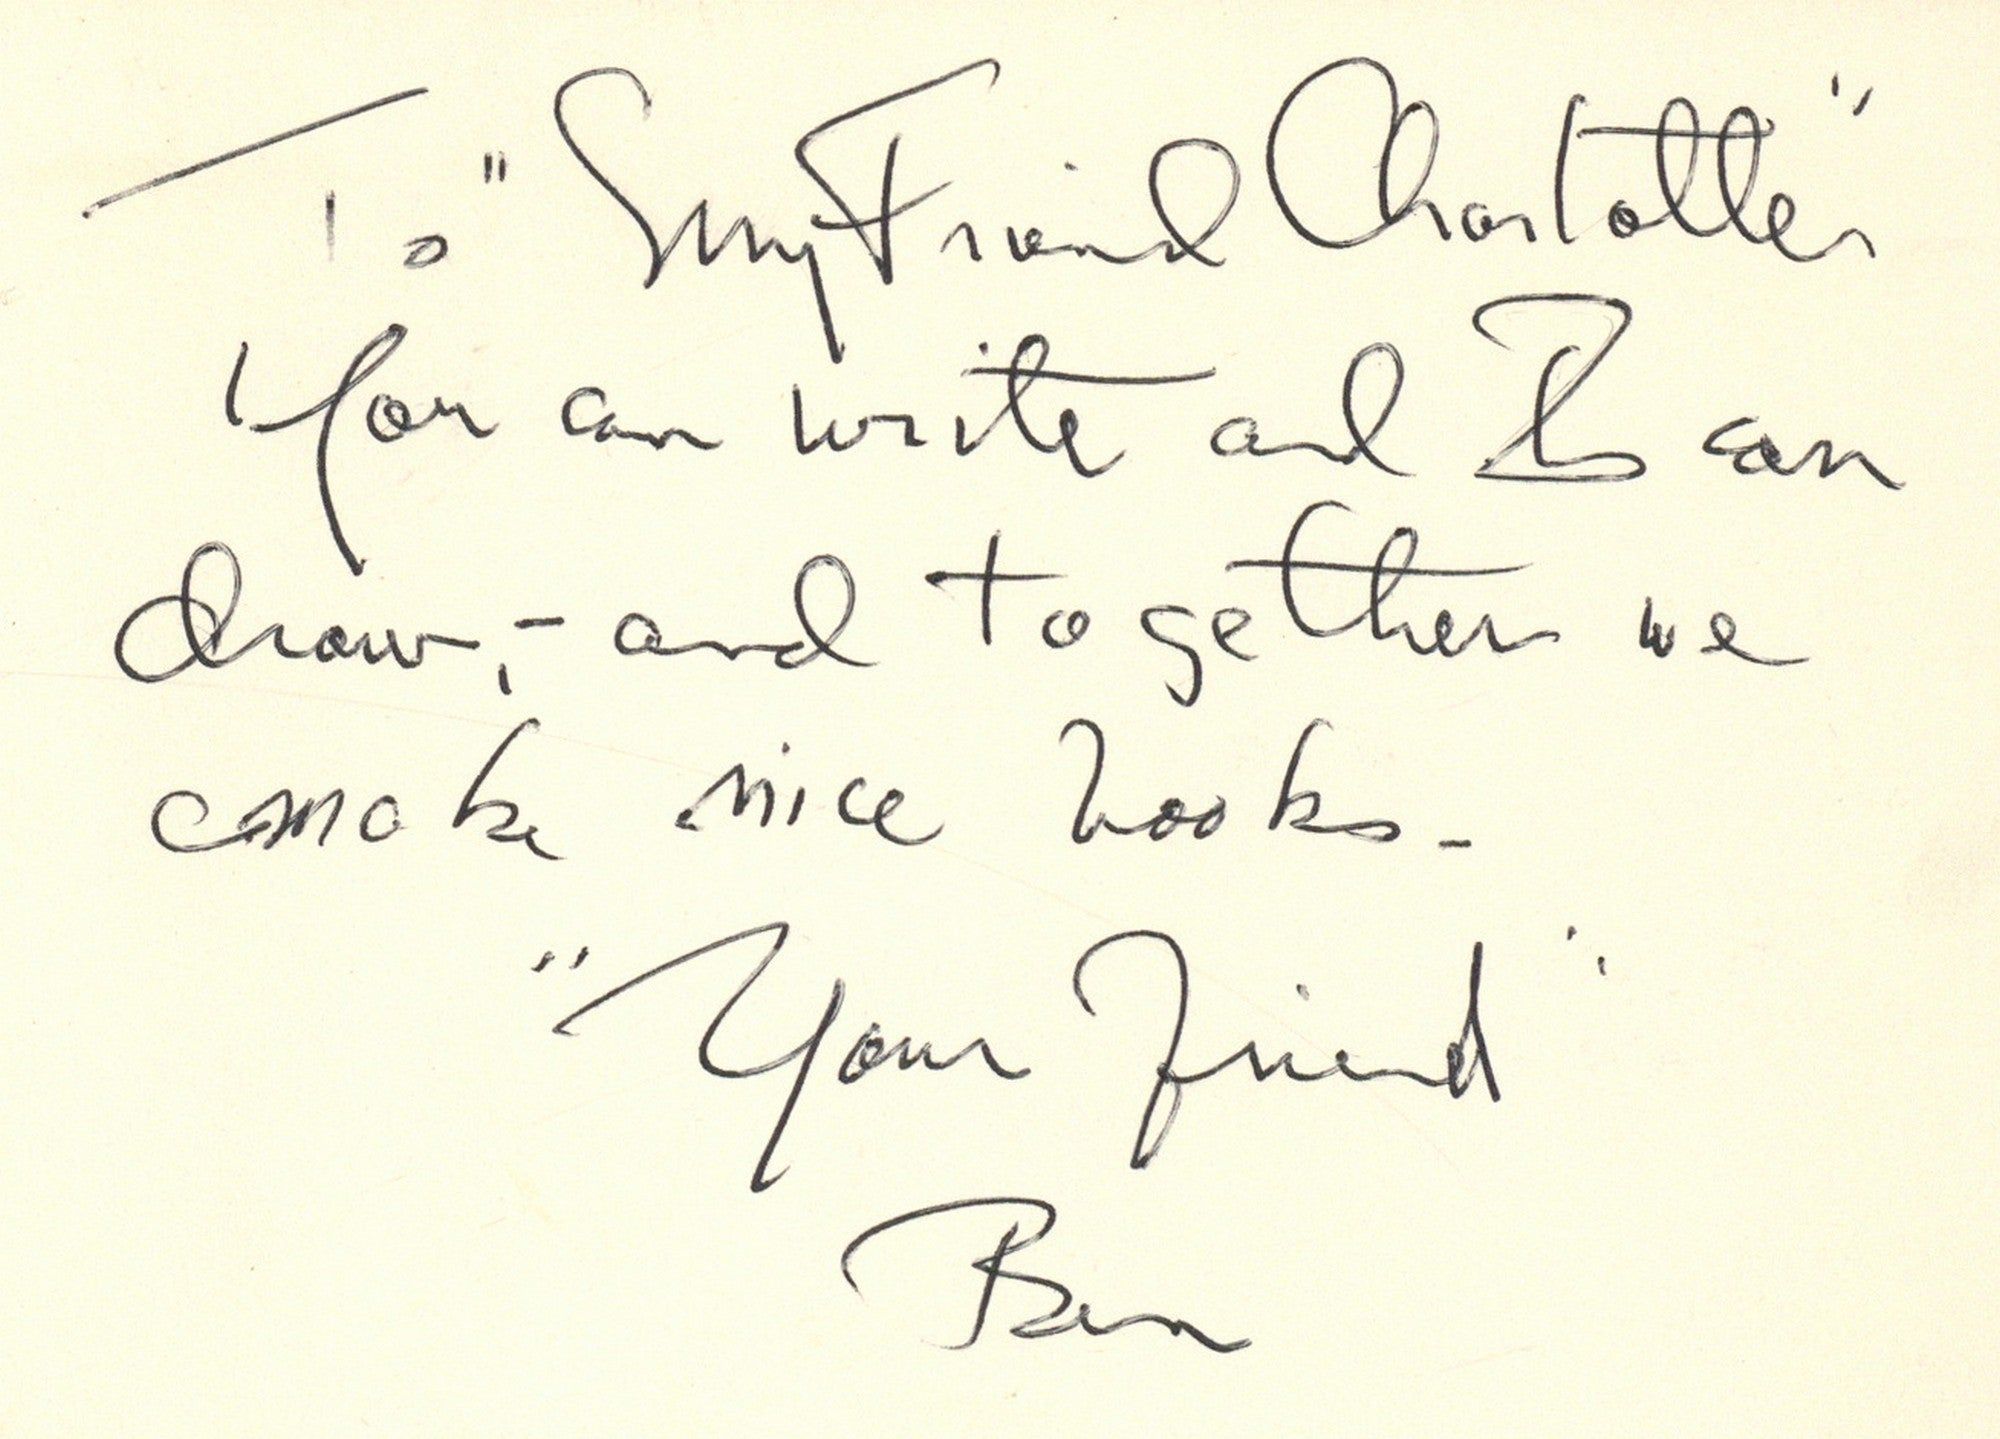 To "My Friend Charlotte"
You can write and I can
draw, - and together we
make nice books -
"Your Friend"
Ben